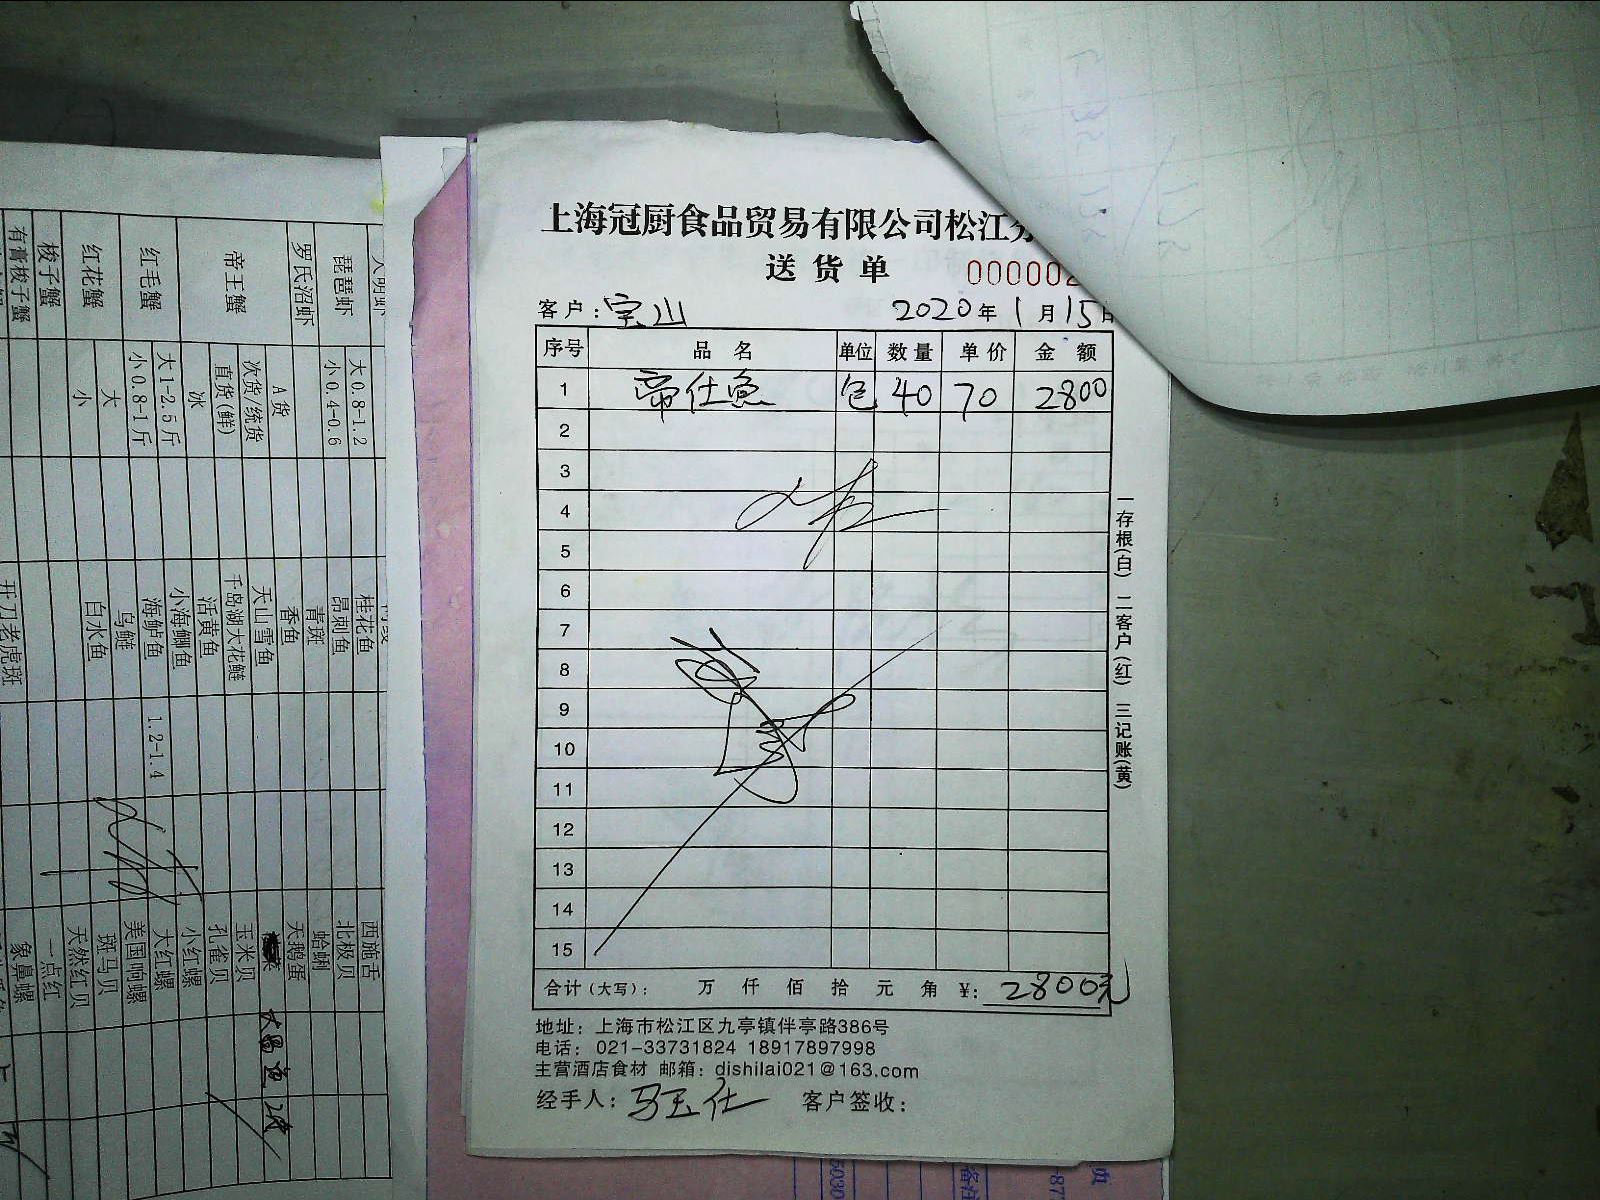 上海冠厨食品贸易有限公司松江
送货单
000002
客户：宝山 2020年1月15日
序号 品名 单位 数量 单价 金额
1 帝仕鱼 包 40 70 2800
2
3
4
5
6
7
8
9
10
11
12
13
14
15
合计（大写）： 万 仟 佰 拾 元 角 ¥：2800元
地址：上海市松江区九亭镇伴亭路386号
电话：021-33731824 18917897998
主营酒店食材 邮箱：dishilai021@163.com
经手人：马玉仕 客户签收：
一存根(白) 二客户(红) 三记账(黄)
琵琶虾 大0.8-1.2
小0.4-0.6
罗氏沼虾
帝王蟹 A货
次货/统货
直货(鲜)
冰
红毛蟹 大1-2.5斤
小0.8-1斤
红花蟹 大
小
梭子蟹
有膏梭子蟹
桂花鱼
昂刺鱼
青斑
香鱼
天山雪鱼
千岛湖大花鲢
活黄鱼
小海鲫鱼
海鲈鱼 1.2-1.4
乌鲢
白水鱼
开刀老虎斑
西施舌
北极贝
蛤蜊
天鹅蛋
玉米贝
孔雀贝
小红螺
大红螺
美国响螺
斑马贝
天然红贝
一点红
象鼻螺